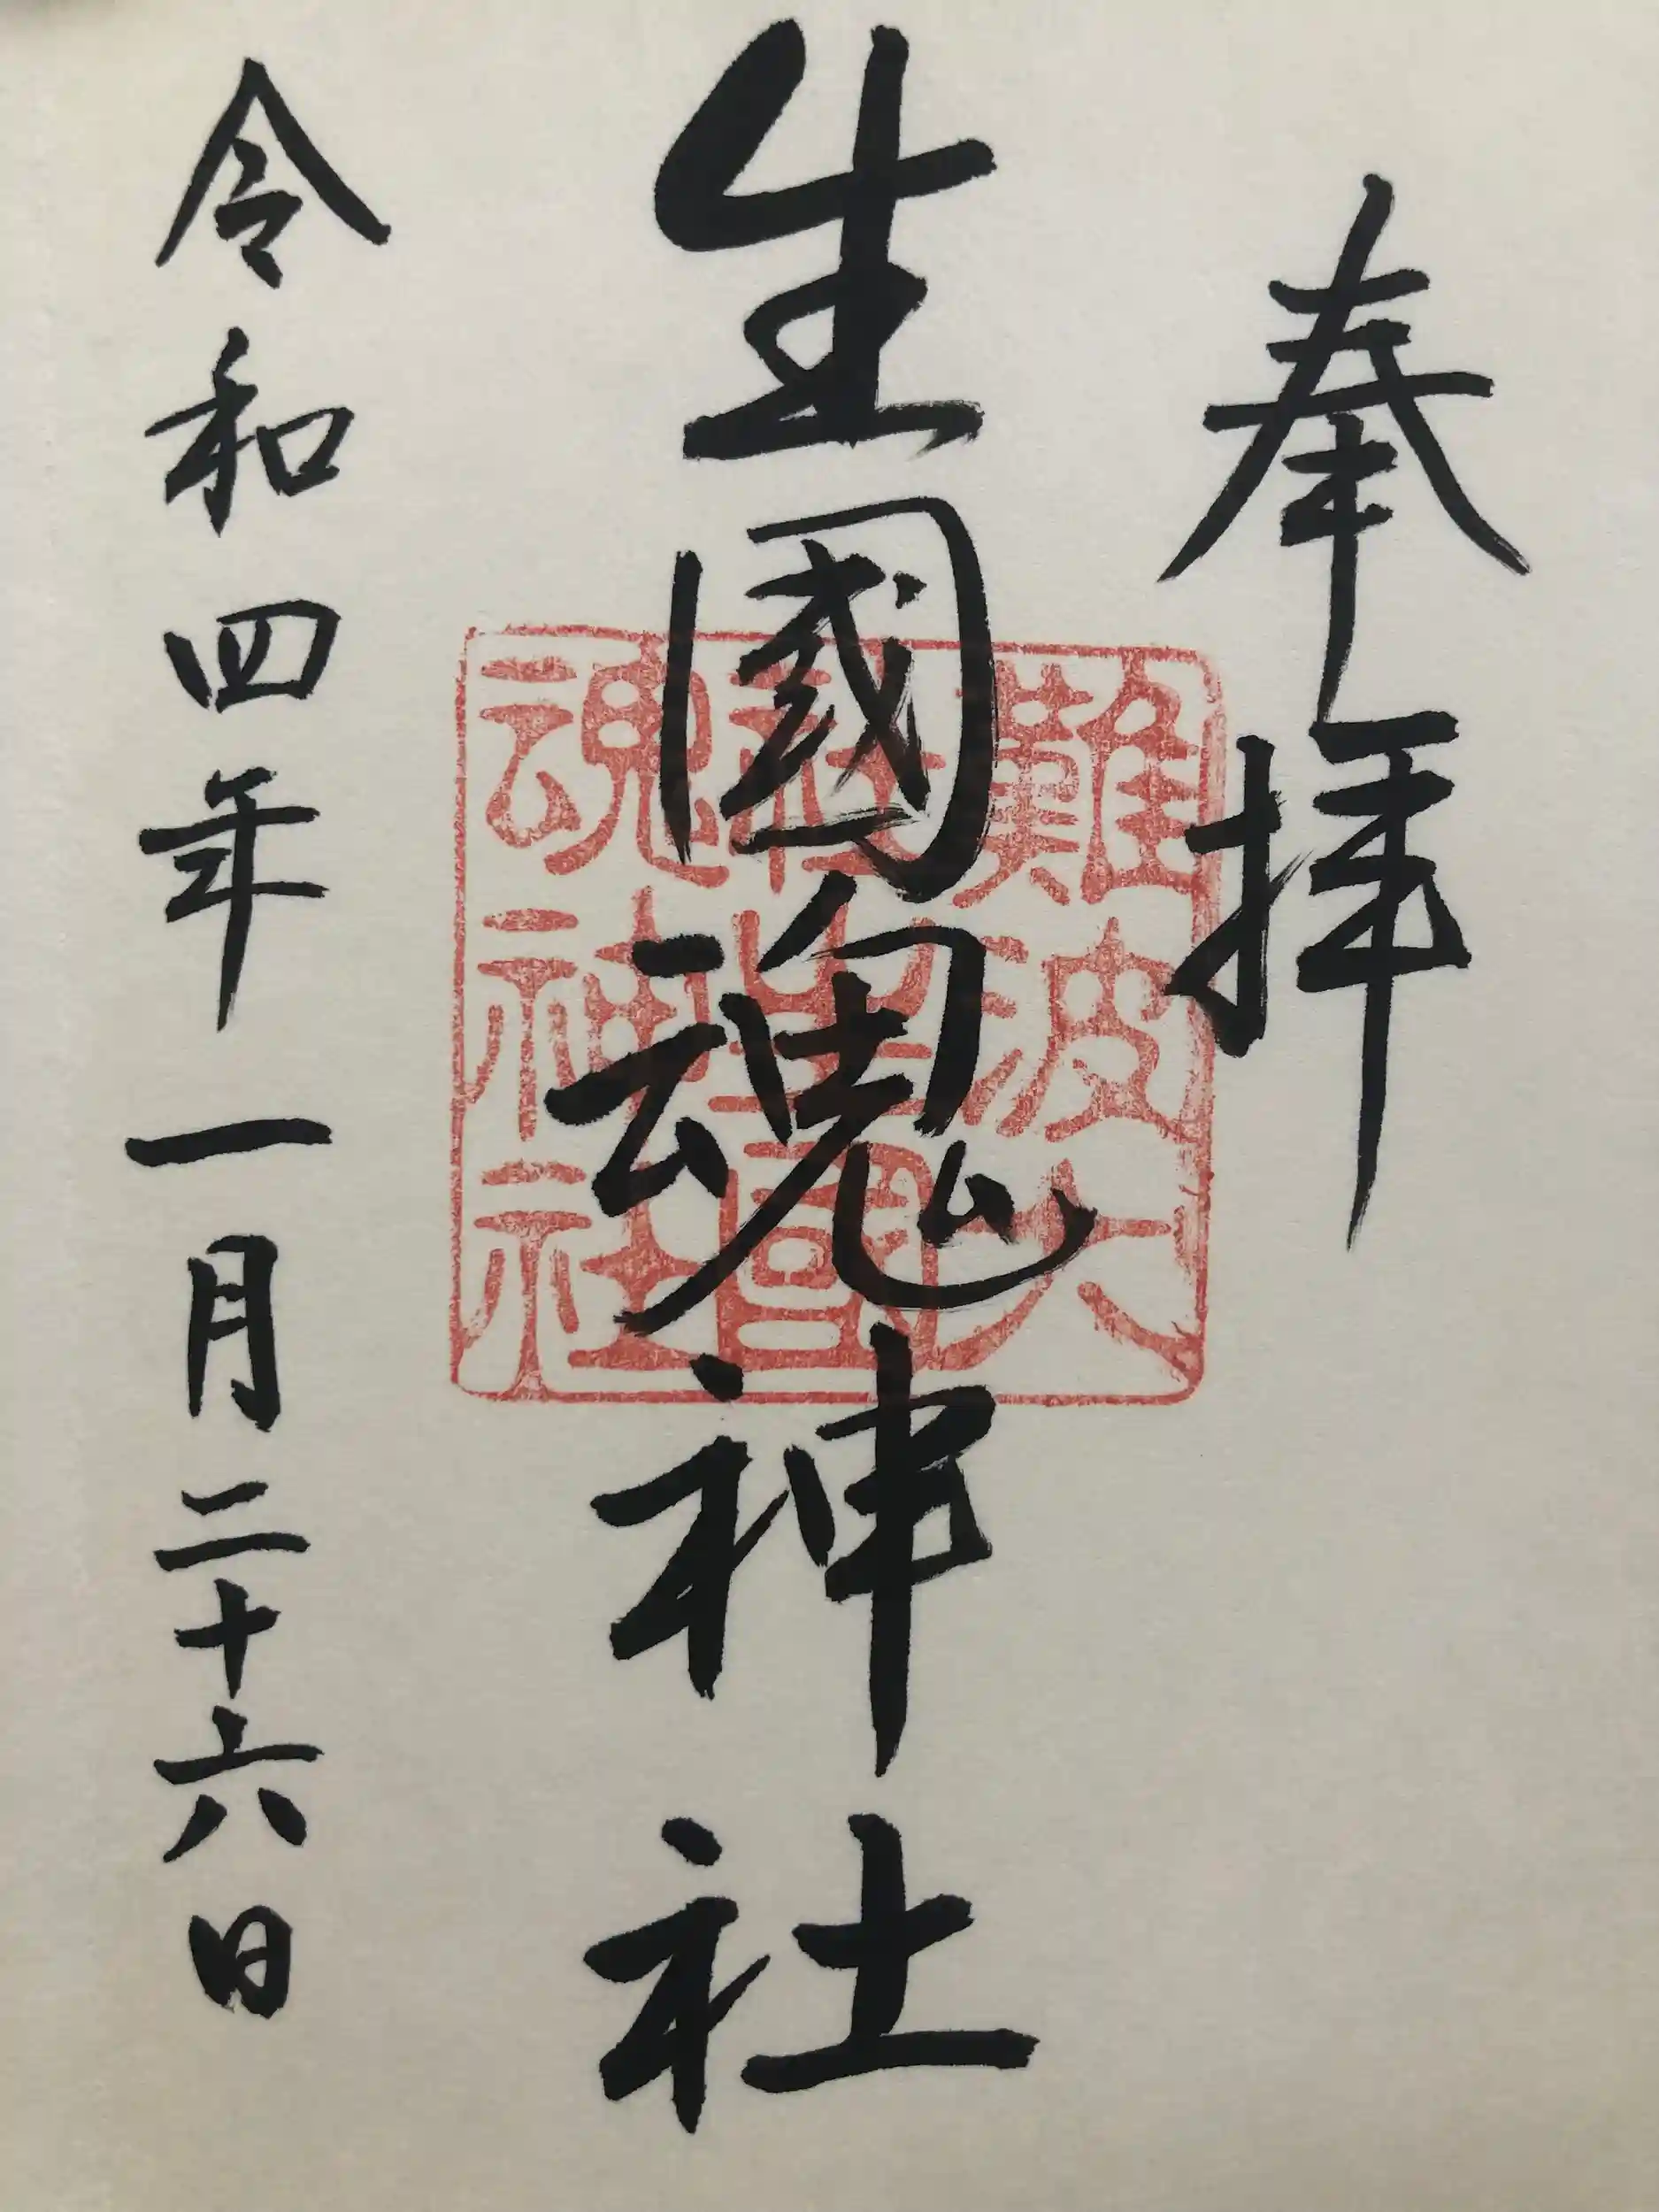 奉拝
生國魂神社
難波大
社生國
魂神社
令和四年一月二十六日